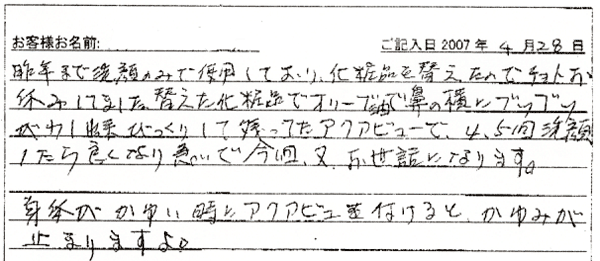 お客様お名前: ご記入日 2007年 4月28日
昨年まで洗顔のみで使用しており、化粧品を替えたのでチョトお
休みしてました。替えた化粧品でオリーブ油で鼻の横にブツブツ
が びっくりして残ってたアクアビューで、4、5回洗顔
したら良くなり急いで今回、又、お世話になります。
身体がかゆい時にアクアビューを付けると、かゆみが
止まりますよ。